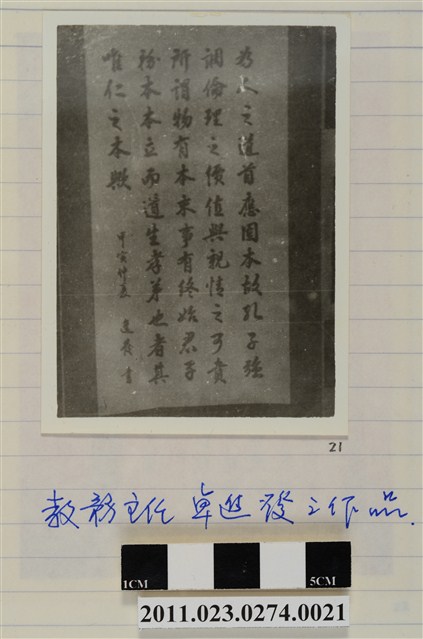 為人之道首應固本故孔子強
調倫理之價值與親情之可貴
所謂物有本末事有終始君子
務本本立而道生孝弟也者其
唯仁之本歟
甲寅仲 進發 書
21
教務主任 卓進發之作品.
1CM 5CM
2011.023.0274.0021